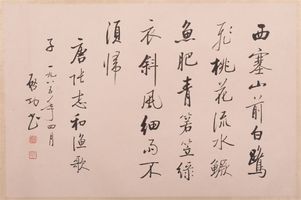 西塞山前白鹭
飛桃花流水鳜
魚肥青箬笠緑
衣斜風细雨不
須歸
唐张志和渔歌
子一九八五年四月
啟功书